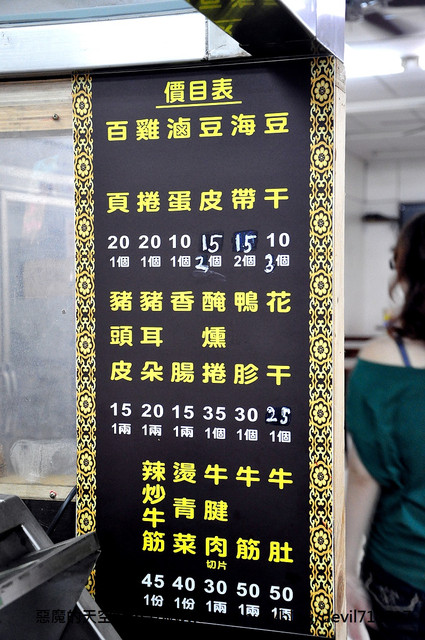 價目表
豆干
10
3個
海帶
15
2個
豆皮
15
2個
滷蛋
10
1個
雞捲
20
1個
百頁
20
1個
花干
25
1個
鴨胗
30
1個
醃燻捲
35
1個
香腸
15
1兩
豬耳朵
20
1兩
豬頭皮
15
1兩
牛肚
50
1兩
牛筋
50
1兩
牛腱肉切片
30
1兩
燙青菜
40
1份
辣炒牛筋
45
1份
惡魔的天空